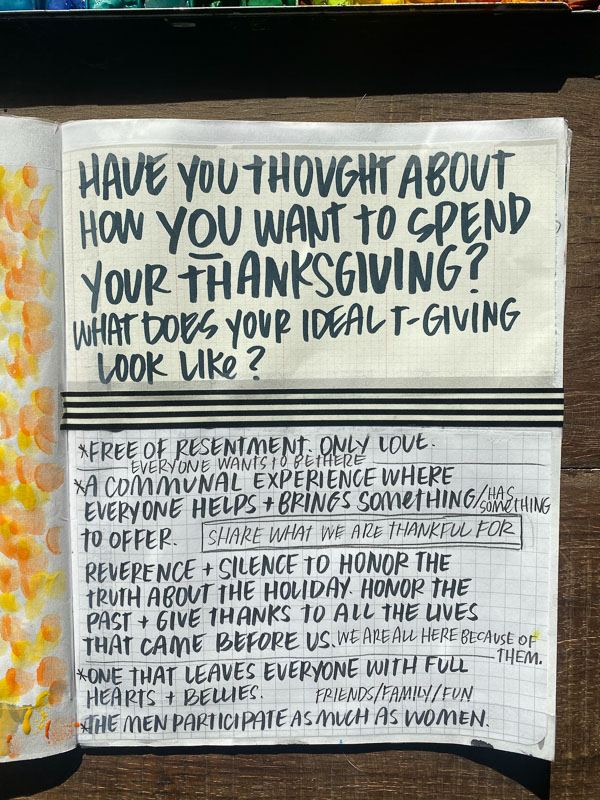 HAVE YOU THOUGHT ABOUT
HOW YOU WANT TO SPEND
YOUR THANKSGIVING?
WHAT DOES YOUR IDEAL T-GIVING
LOOK LIKE?
*FREE OF RESENTMENT. ONLY LOVE.
EVERYONE WANTS TO BE THERE
*A COMMUNAL EXPERIENCE WHERE
EVERYONE HELPS + BRINGS SOMETHING/HAS SOMETHING
TO OFFER. SHARE WHAT WE ARE THANKFUL FOR
REVERENCE + SILENCE TO HONOR THE
TRUTH ABOUT THE HOLIDAY. HONOR THE
PAST + GIVE THANKS TO ALL THE LIVES
THAT CAME BEFORE US. WE ARE ALL HERE BECAUSE OF
THEM.
*ONE THAT LEAVES EVERYONE WITH FULL
HEARTS + BELLIES. FRIENDS/FAMILY/FUN
*THE MEN PARTICIPATE AS MUCH AS WOMEN.